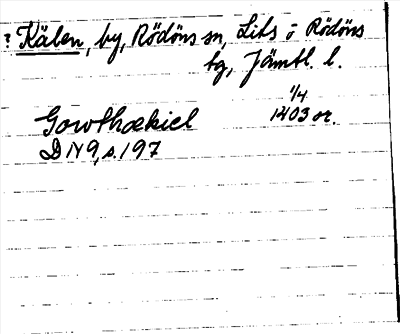 ? Kälen, by, Rödöns sn, Lits o Rödöns
tg, Jämtl. l.
1/4
Gowthækiel 1403 or.
DN 9, s. 197